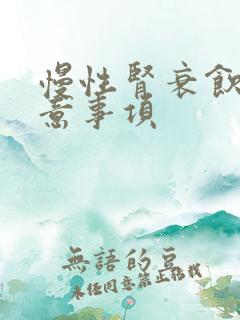 慢性腎衰飲
意事項
無語的豆
未任同意禁止轉載